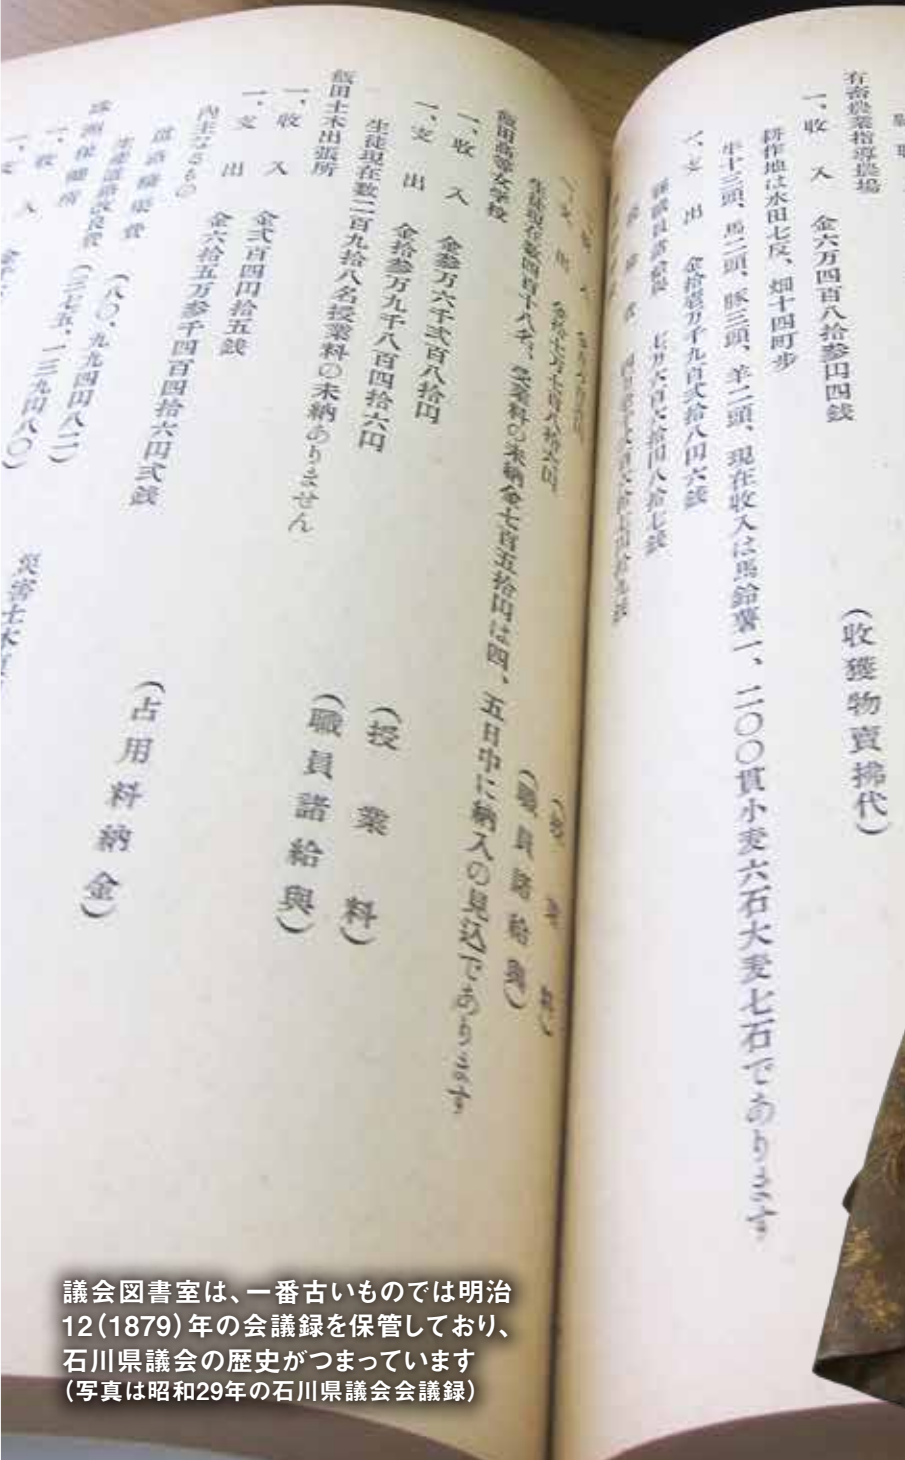 有畜農業指導農場
一、收入 金六万四百八拾参円四銭 (收獲物賣拂代)
耕作地は水田七反、畑十四町歩
牛十三頭、馬二頭、豚三頭、羊二頭、現在収入は馬鈴薯一、二〇〇貫小麦六石大麦七石であります
一、支出 金拾壱万千九百弐拾八円六銭
七万六百六拾四円八拾七銭
(授業料)
(職員諸給與)
生徒現在数四百十八名、授業料の未納金七百五拾円は四、五日中に納入の見込であります
飯田高等女学校
一、收入 金参万六千弐百八拾円 (授業料)
一、支出 金拾参万九千八百四拾六円 (職員諸給與)
生徒現在数二百九拾八名授業料の未納ありません
飯田土木出張所
一、收入 金弐百四円拾五銭 (占用料納金)
一、支出 金六拾五万参千四百四拾六円弐銭
内主なるもの
道路橋梁費 (八〇、九九四円八二) 災害土木
(三七五、一三九円八〇)
一、收入
議会図書室は、一番古いものでは明治
12(1879)年の会議録を保管しており、
石川県議会の歴史がつまっています
(写真は昭和29年の石川県議会会議録)